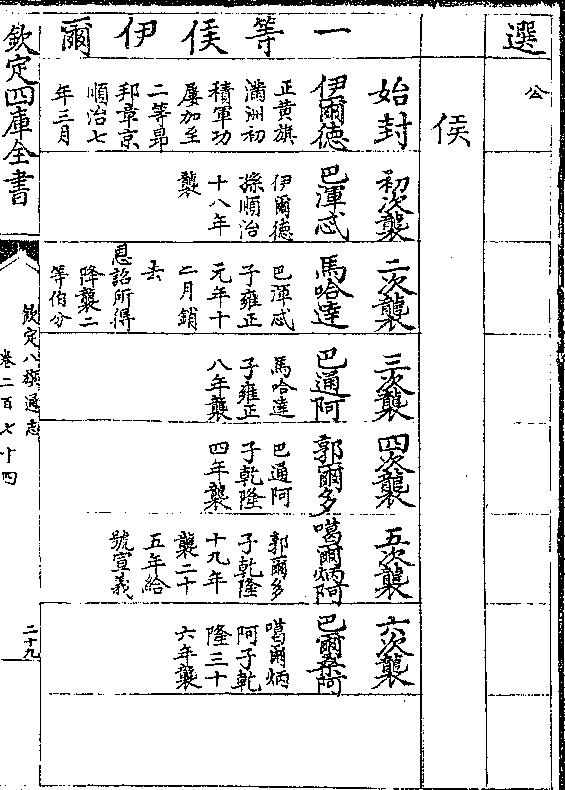 選
公
侯
一等侯伊爾
始封
伊爾德
正黃旗
滿洲初
積軍功
屢加至
二等昂
邦章京
順治七
年三月
初次襲
巴渾忒
伊爾德
孫順治
十八年
襲
二次襲
馬哈達
巴渾忒
子雍正
元年十
二月銷
去
恩詔所得
降襲二
等伯分
三次襲
巴通阿
馬哈達
子雍正
八年襲
四次襲
郭爾多
巴通阿
子乾隆
四年襲
五次襲
噶爾炳阿
郭爾多
子乾隆
十九年
襲二十
五年給
號宣義
六次襲
巴爾桑阿
噶爾炳
阿子乾
隆三十
六年襲
欽定四庫全書
欽定八旗通志
卷二百七十四
二十九